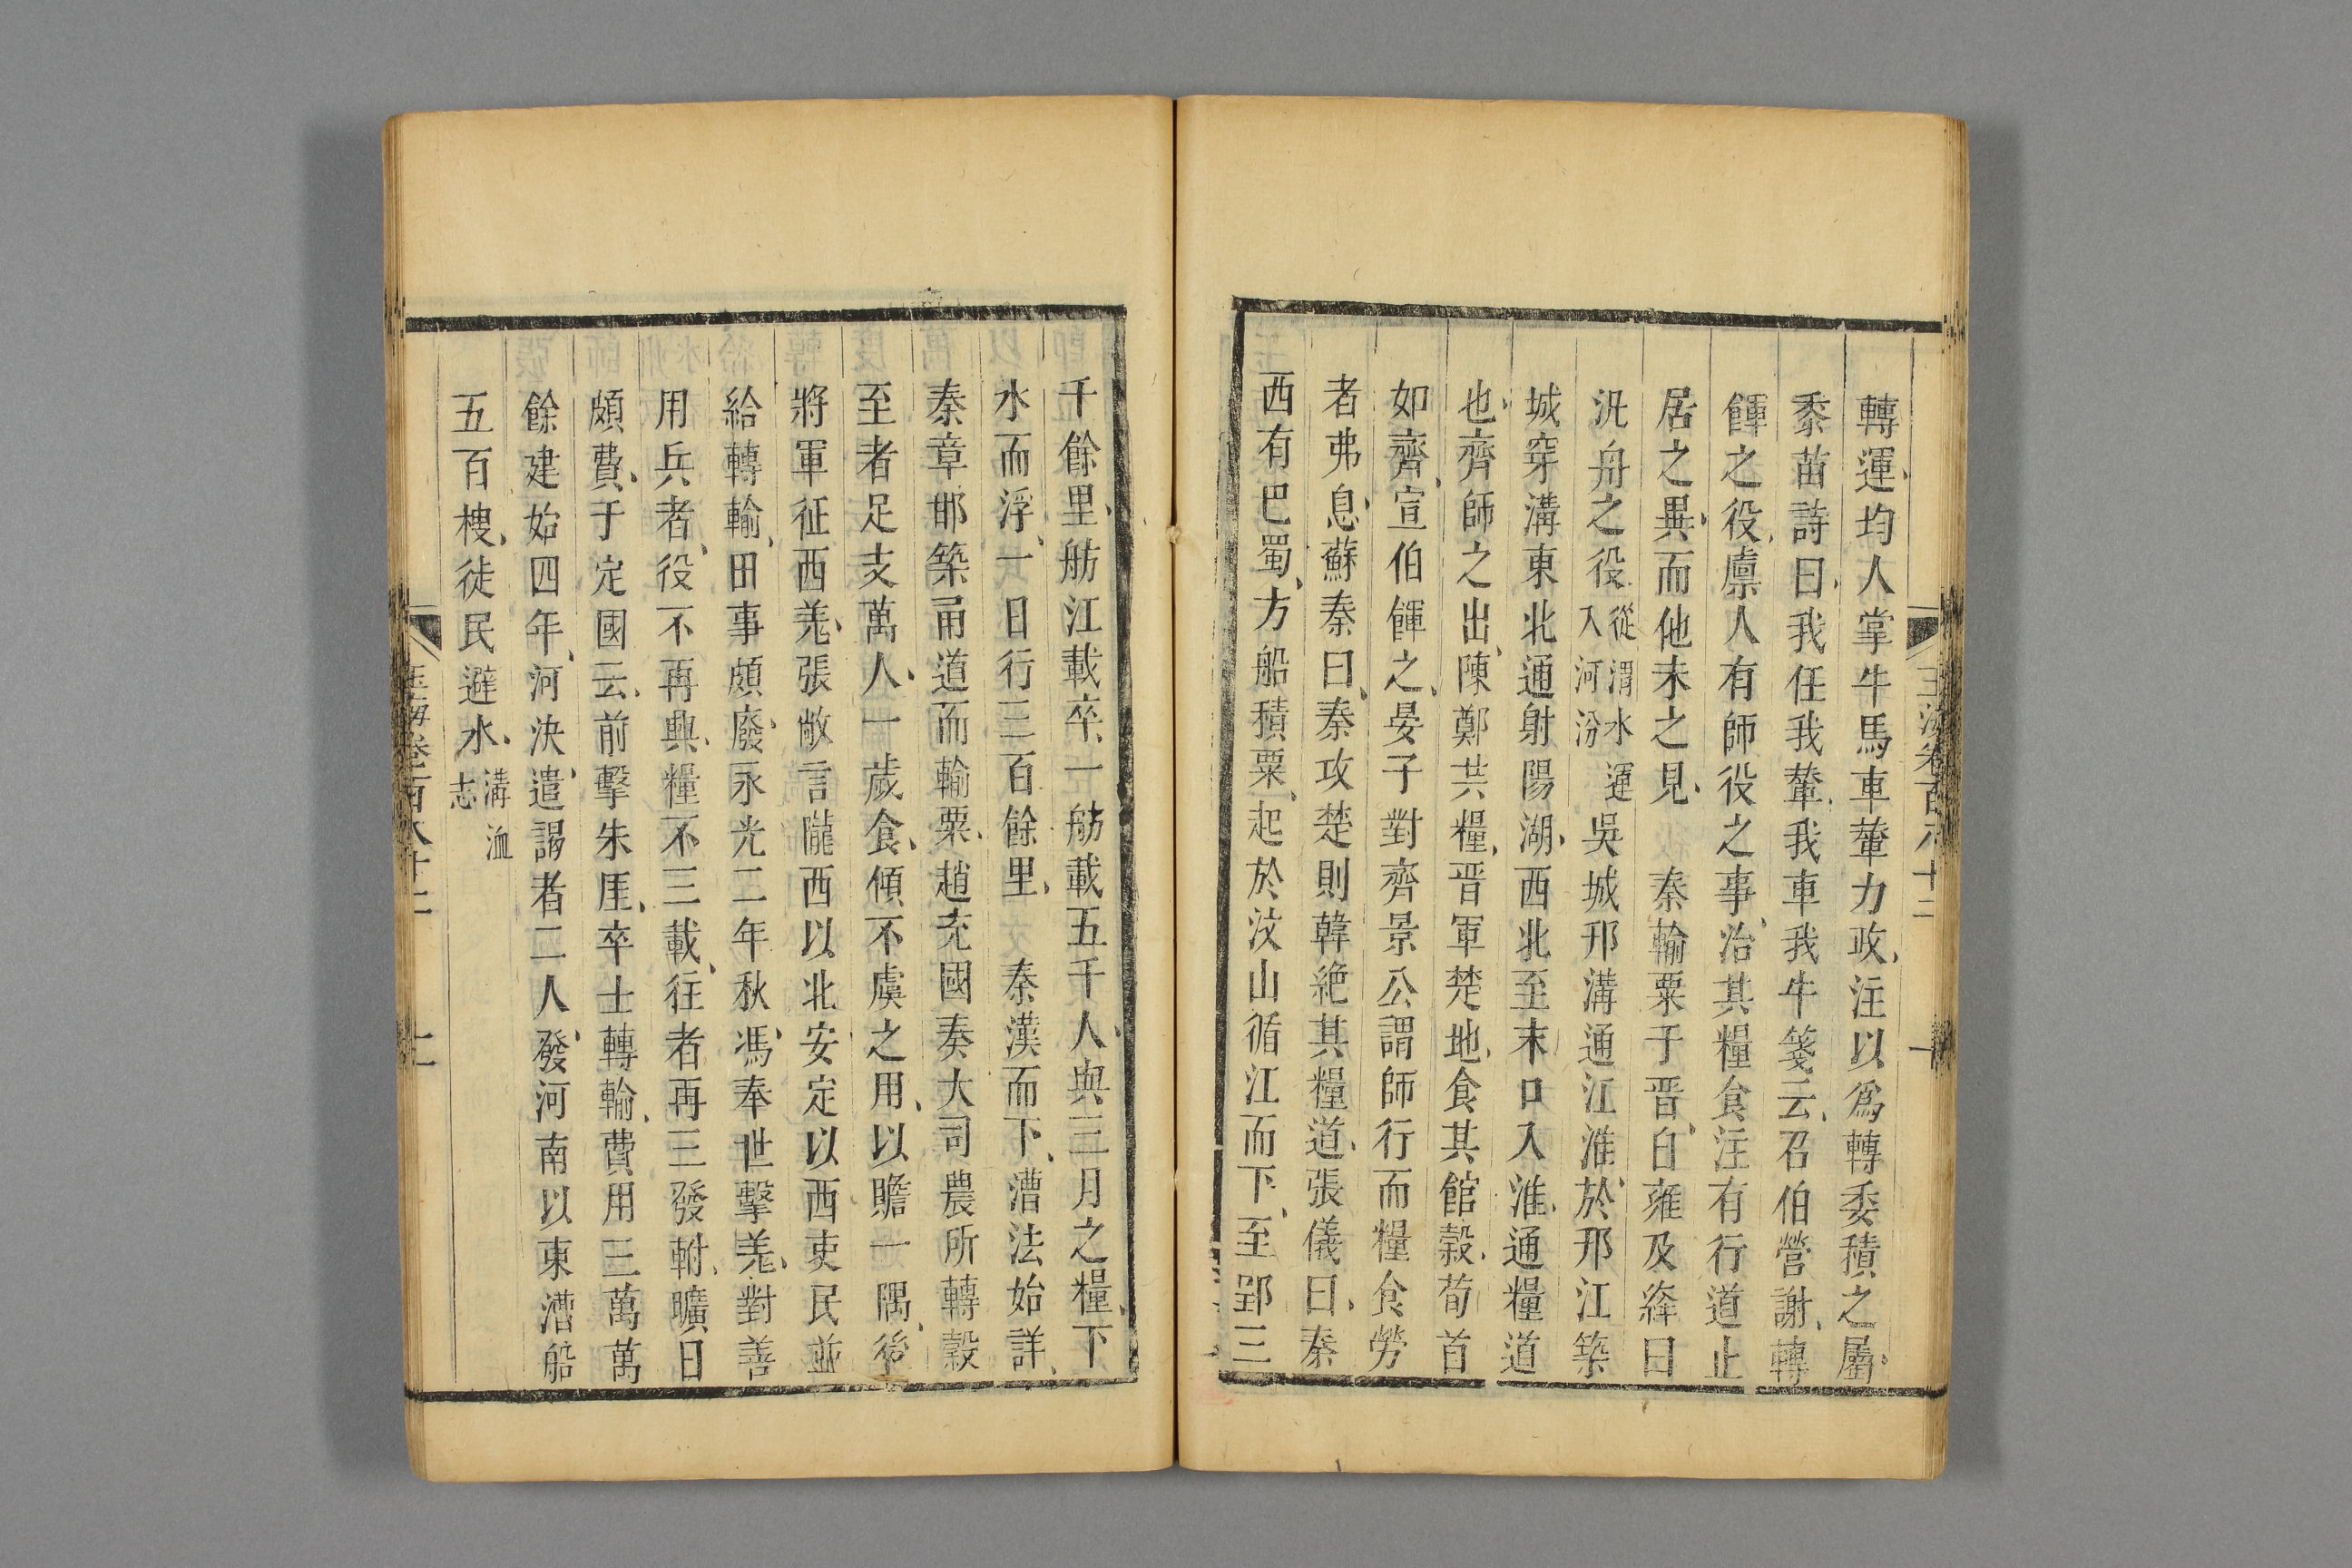 轉運均人掌牛馬車輦力政注以爲轉委積之屬
黍苗詩曰我任我輦我車我牛箋云召伯營謝轉
餫之役廩人有師役之事治其糧食注有行道止
居之異而他未之見　秦輸粟于晋自雍及絳曰
汎舟之役從渭水運入河汾　吳城邗溝通江淮於邗江築
城穿溝東北通射陽湖西北至末口入淮通糧道
也齊師之出陳鄭共糧晋軍楚地食其館穀荀首
如齊宣伯餫之晏子對齊景公謂師行而糧食勞
者弗息蘇秦曰秦攻楚則韓絶其糧道張儀曰秦
西有巴蜀方船積粟起於汶山循江而下至郢三
千餘里舫江載卒一舫載五千人與三月之糧下
水而浮一日行三百餘里　秦漢而下漕法始詳
秦章邯築甬道而輸粟趙充國奏大司農所轉穀
至者足支萬人一歲食傾不虞之用以贍一隅後
將軍征西羌張敞言隴西以北安定以西吏民並
給轉輸田事頗廢永光二年秋馮奉世擊羌對善
用兵者役不再興糧不三載往者再三發軵曠日
頗費于定國云前擊朱厓卒士轉輸費用三萬萬
餘建始四年河決遣謁者二人發河南以東漕船
五百㮴徙民避水溝洫志
玉海卷百八十二